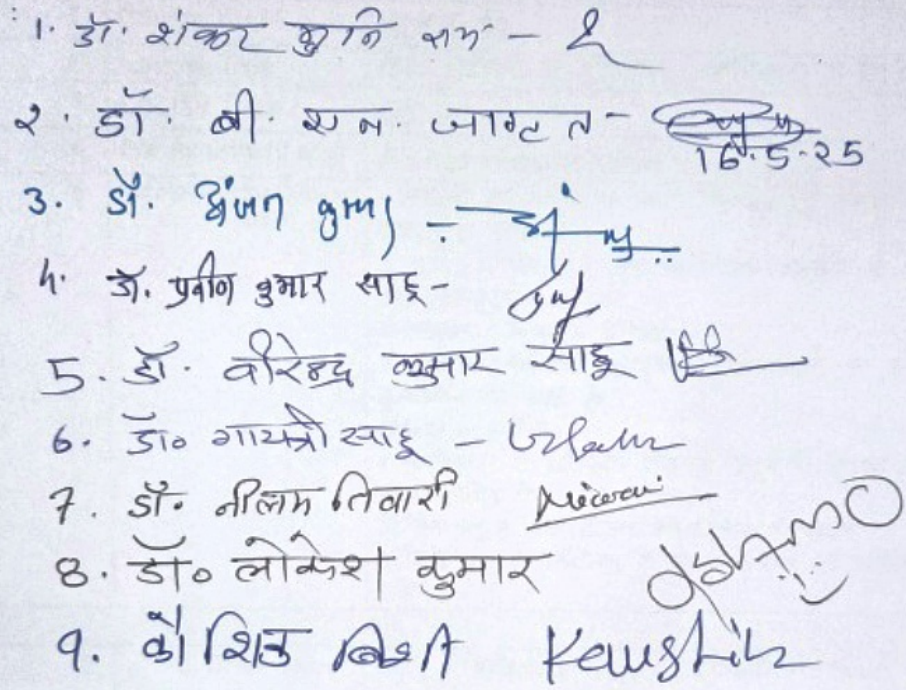 1. डॉ. शंकर मुनि राय -
२. डॉ. बी. एन. जागृत -
16.5.25
3. डॉ. कुमार -
4. डॉ. प्रवीण कुमार साहू -
5. डॉ. वीरेन्द्र कुमार साहू
6. डॉ० गायत्री साहू -
7. डॉ. नीलम तिवारी Tiwari
8. डॉ० लोकेश कुमार
9. कौशिक Kaushik